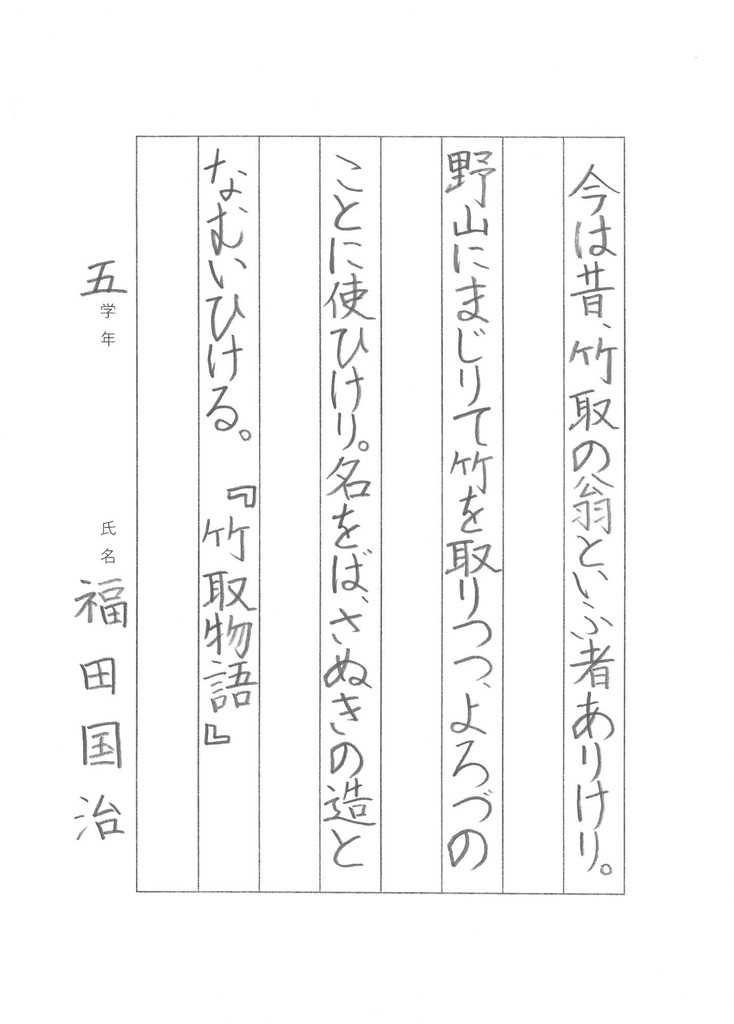 今は昔、竹取の翁といふ者ありけり。
野山にまじりて竹を取りつつ、よろづの
ことに使ひけり。名をば、さぬきの造と
なむいひける。『竹取物語』
五学年 氏名 福田国治